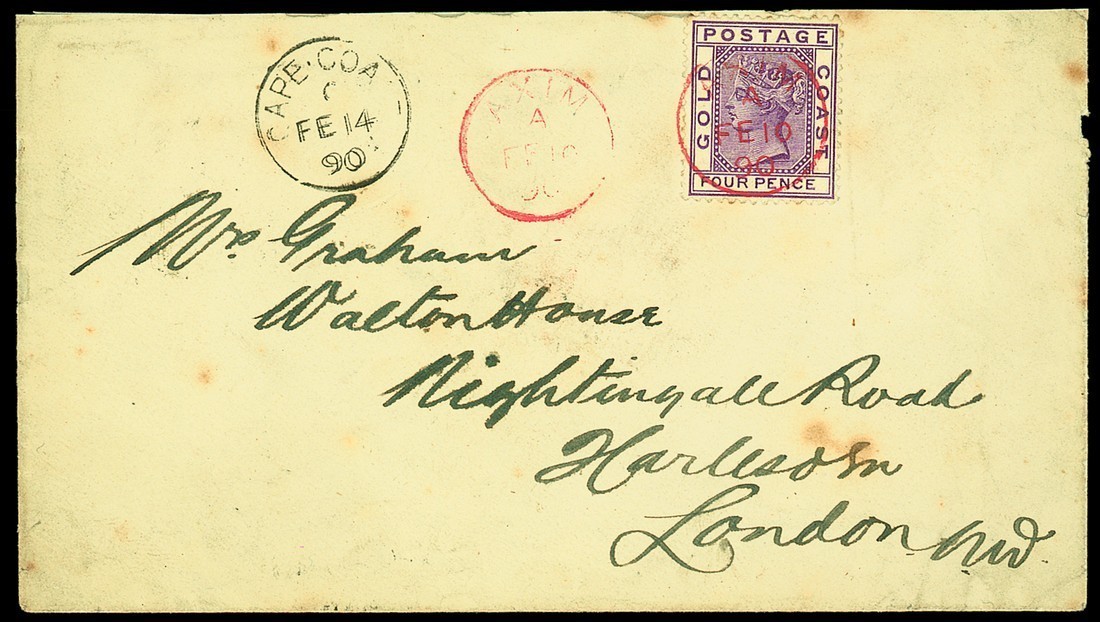 CAPE·COA
C
FE 14
90
AXIM
A
FE 10
90
POSTAGE
GOLD
COAST
FOUR PENCE
A
FE 10
90
Mrs Graham
Walton House
Nightingall Road
Harlesdin
London NW.